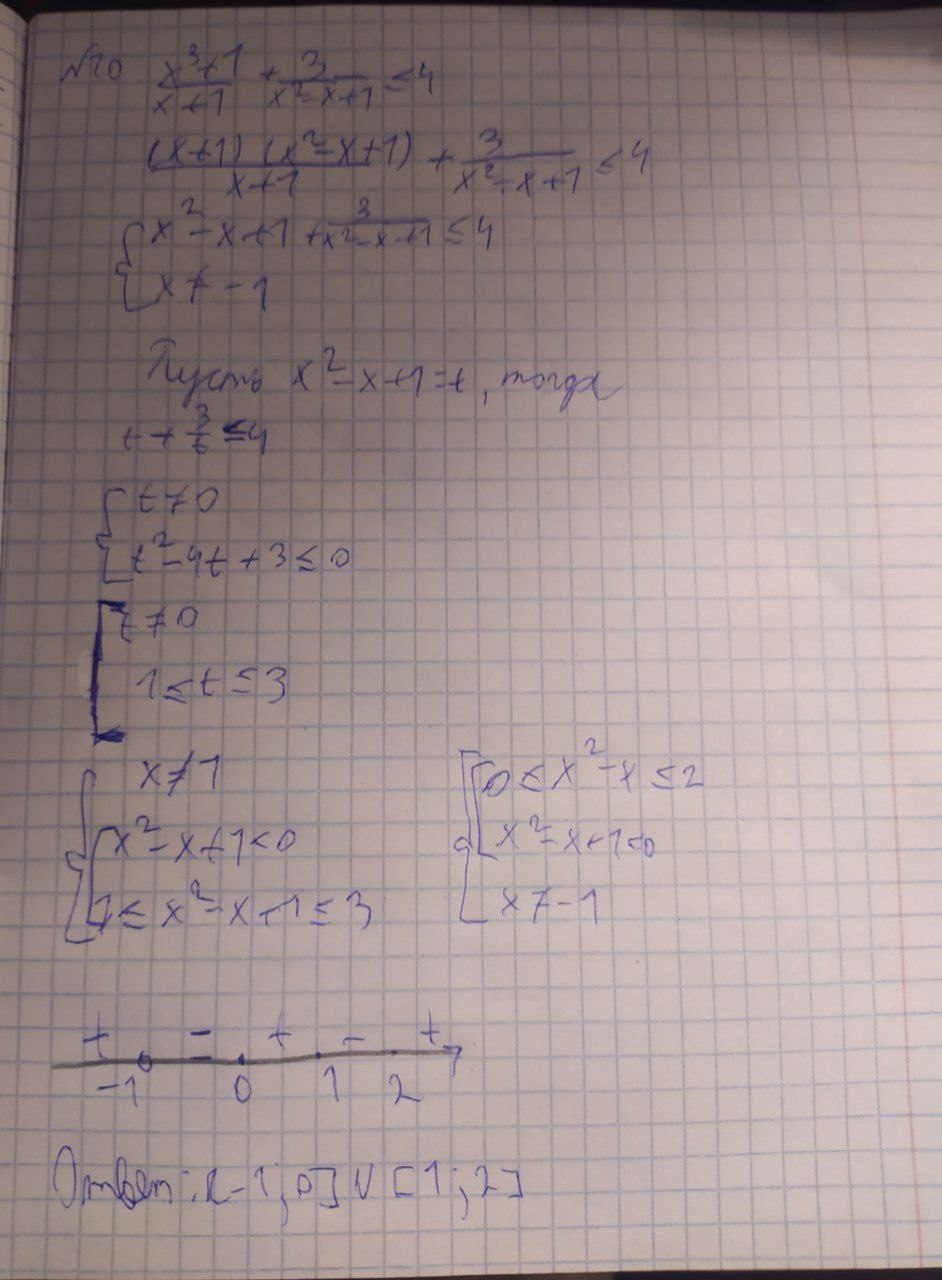 №10 (x³+1)/(x+1) + 3/(x²-x+1) ≤ 4
(x+1)(x²-x+1)/(x+1) + 3/(x²-x+1) ≤ 4
{ x²-x+1 + 3/(x²-x+1) ≤ 4
x ≠ -1
Пусть x²-x+1=t, тогда
t + 3/t ≤ 4
{ t ≠ 0
t²-4t+3 ≤ 0
[ t ≠ 0
1 ≤ t ≤ 3
{ x ≠ 1
[ x²-x+1<0
1 ≤ x²-x+1 ≤ 3
[ 0 ≤ x²-x ≤ 2
x²-x+1<0
x ≠ -1
+ - + - +
-1 0 1 2
Ответ: (-1; 0] ∪ [1; 2]